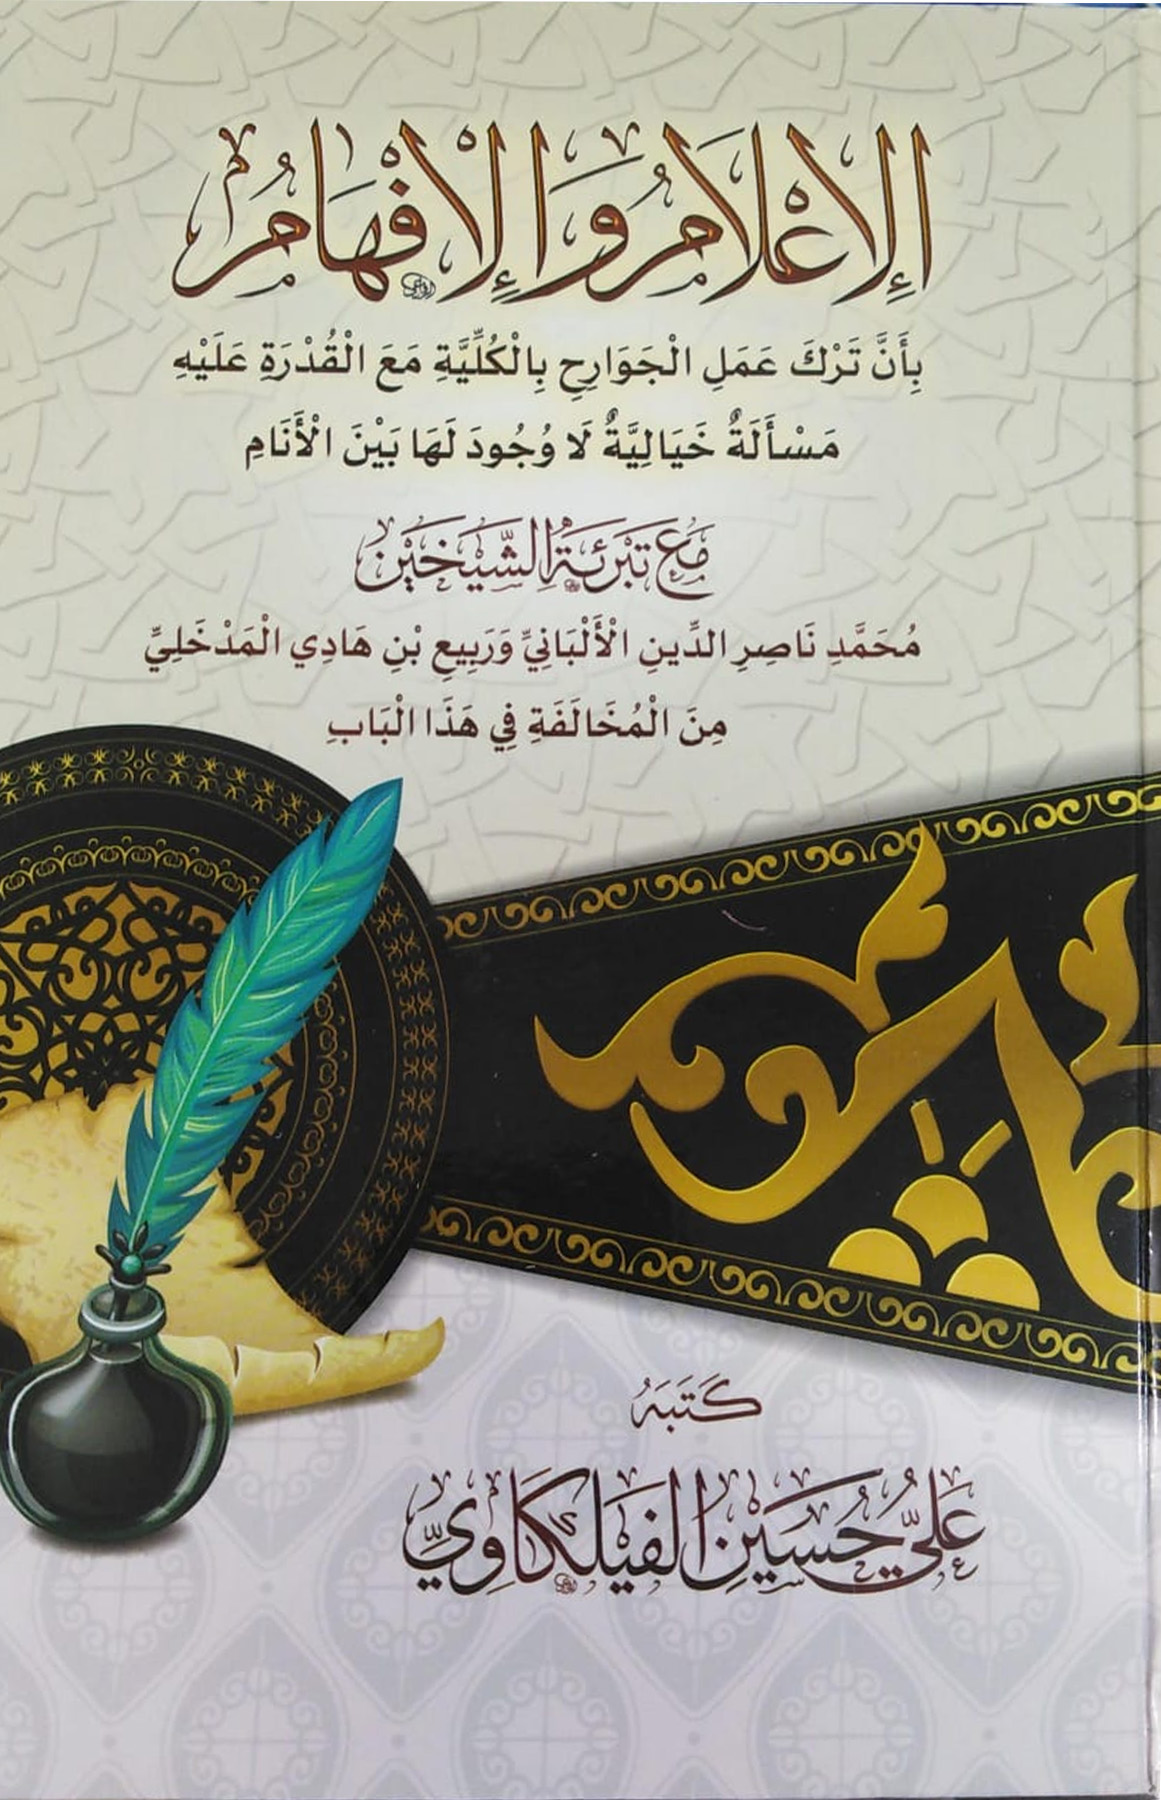 الإِعْلَامُ وَالإِفْهَامُ
بِأَنَّ تَرْكَ عَمَلِ الْجَوَارِحِ بِالْكُلِّيَّةِ مَعَ الْقُدْرَةِ عَلَيْهِ
مَسْأَلَةٌ خَيَالِيَّةٌ لَا وُجُودَ لَهَا بَيْنَ الْأَنَامِ
مَعَ تَبْرِئَةِ الشَّيْخَيْنِ
مُحَمَّدِ نَاصِرِ الدِّينِ الْأَلْبَانِيِّ وَرَبِيعِ بْنِ هَادِي الْمَدْخَلِيِّ
مِنَ الْمُخَالَفَةِ فِي هَذَا الْبَابِ
كَتَبَهُ
عَلِيُّ حُسَيْنِ الفَيْلَكَاوِيِّ